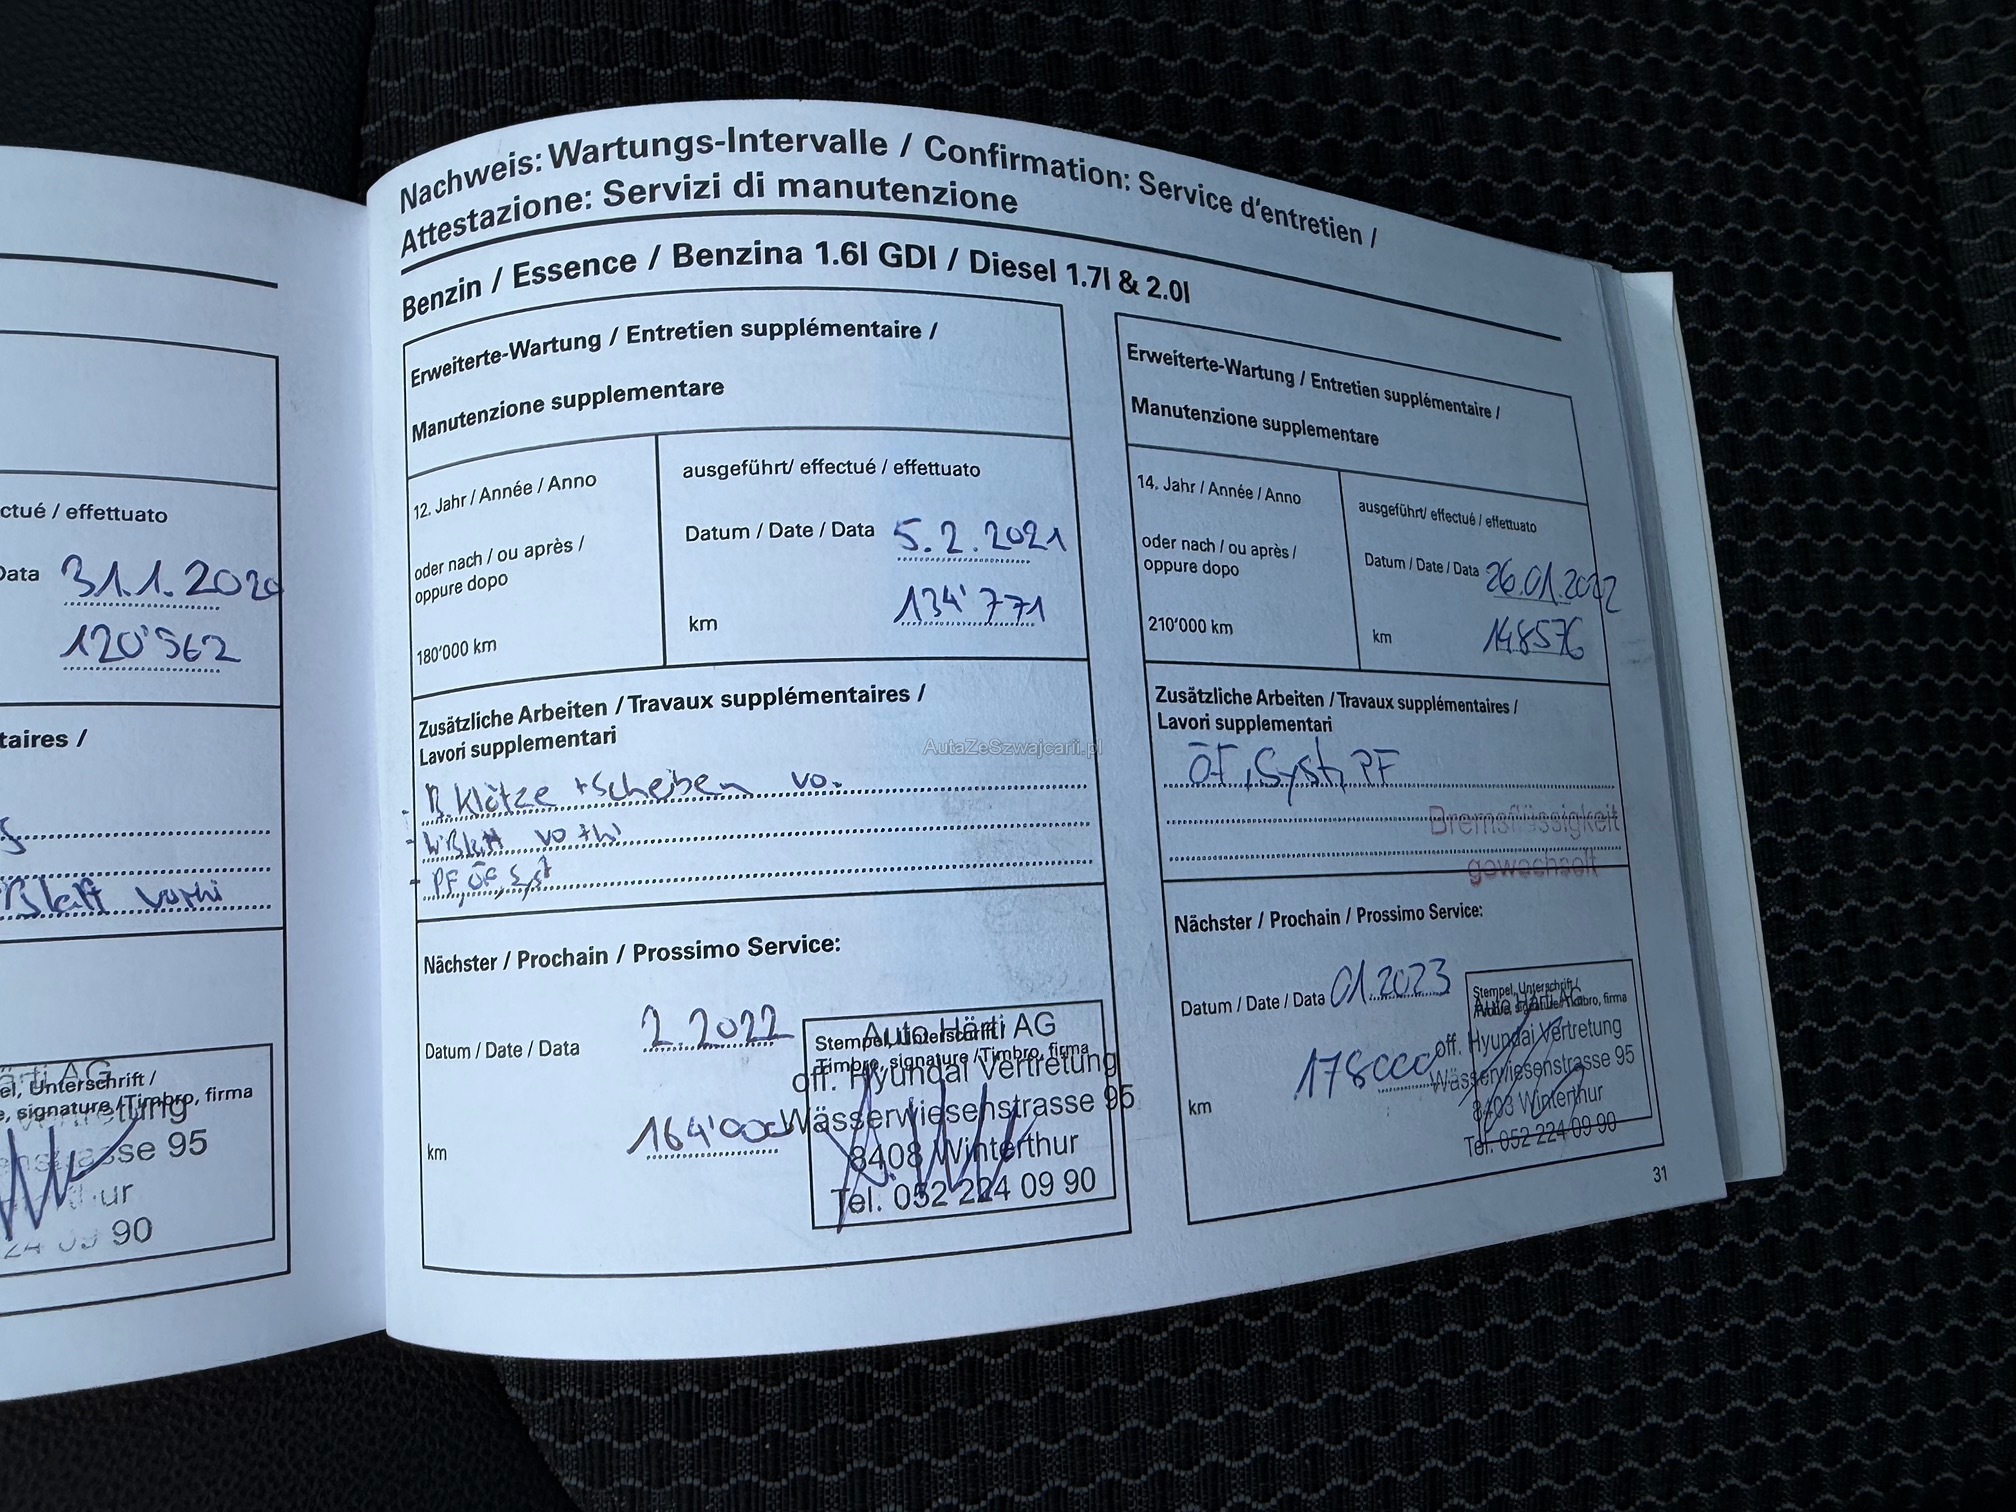 ctué / effettuato
Data 31.1.2020
120'562
taires /
Blatt vorhi
ärti AG
el, Unterschrift /
e, signature / Timbro, firma
sse 95
ur
90
Nachweis: Wartungs-Intervalle / Confirmation: Service d'entretien /
Attestazione: Servizi di manutenzione
Benzin / Essence / Benzina 1.6l GDI / Diesel 1.7l & 2.0l
Erweiterte-Wartung / Entretien supplémentaire /
Manutenzione supplementare
12. Jahr / Année / Anno
oder nach / ou après /
oppure dopo
180'000 km
ausgeführt/ effectué / effettuato
Datum / Date / Data 5.2.2021
km 134'771
Zusätzliche Arbeiten / Travaux supplémentaires /
Lavori supplementari
- B. Klötze + Scheiben vo.
- W.Blatt vo + hi
- PF, ÖF, Syst
Nächster / Prochain / Prossimo Service:
Datum / Date / Data 2.2022
km 164'000
Stempel, Unterschrift /
Timbre, signature / Timbro, firma
Auto Härti AG
off. Hyundai Vertretung
Wässerwiesenstrasse 95
8408 Winterthur
Tel. 052 224 09 90
Erweiterte-Wartung / Entretien supplémentaire /
Manutenzione supplementare
14. Jahr / Année / Anno
oder nach / ou après /
oppure dopo
210'000 km
ausgeführt/ effectué / effettuato
Datum / Date / Data 26.01.2022
km 148576
Zusätzliche Arbeiten / Travaux supplémentaires /
Lavori supplementari
ÖF, Syst, PF
Bremsflüssigkeit
gewechselt
Nächster / Prochain / Prossimo Service:
Datum / Date / Data 01.2023
km 178000
Stempel, Unterschrift /
Timbre, signature / Timbro, firma
Auto Härti AG
off. Hyundai Vertretung
Wässerwiesenstrasse 95
8408 Winterthur
Tel. 052 224 09 90
31
AutaZeSzwajcarii.pl